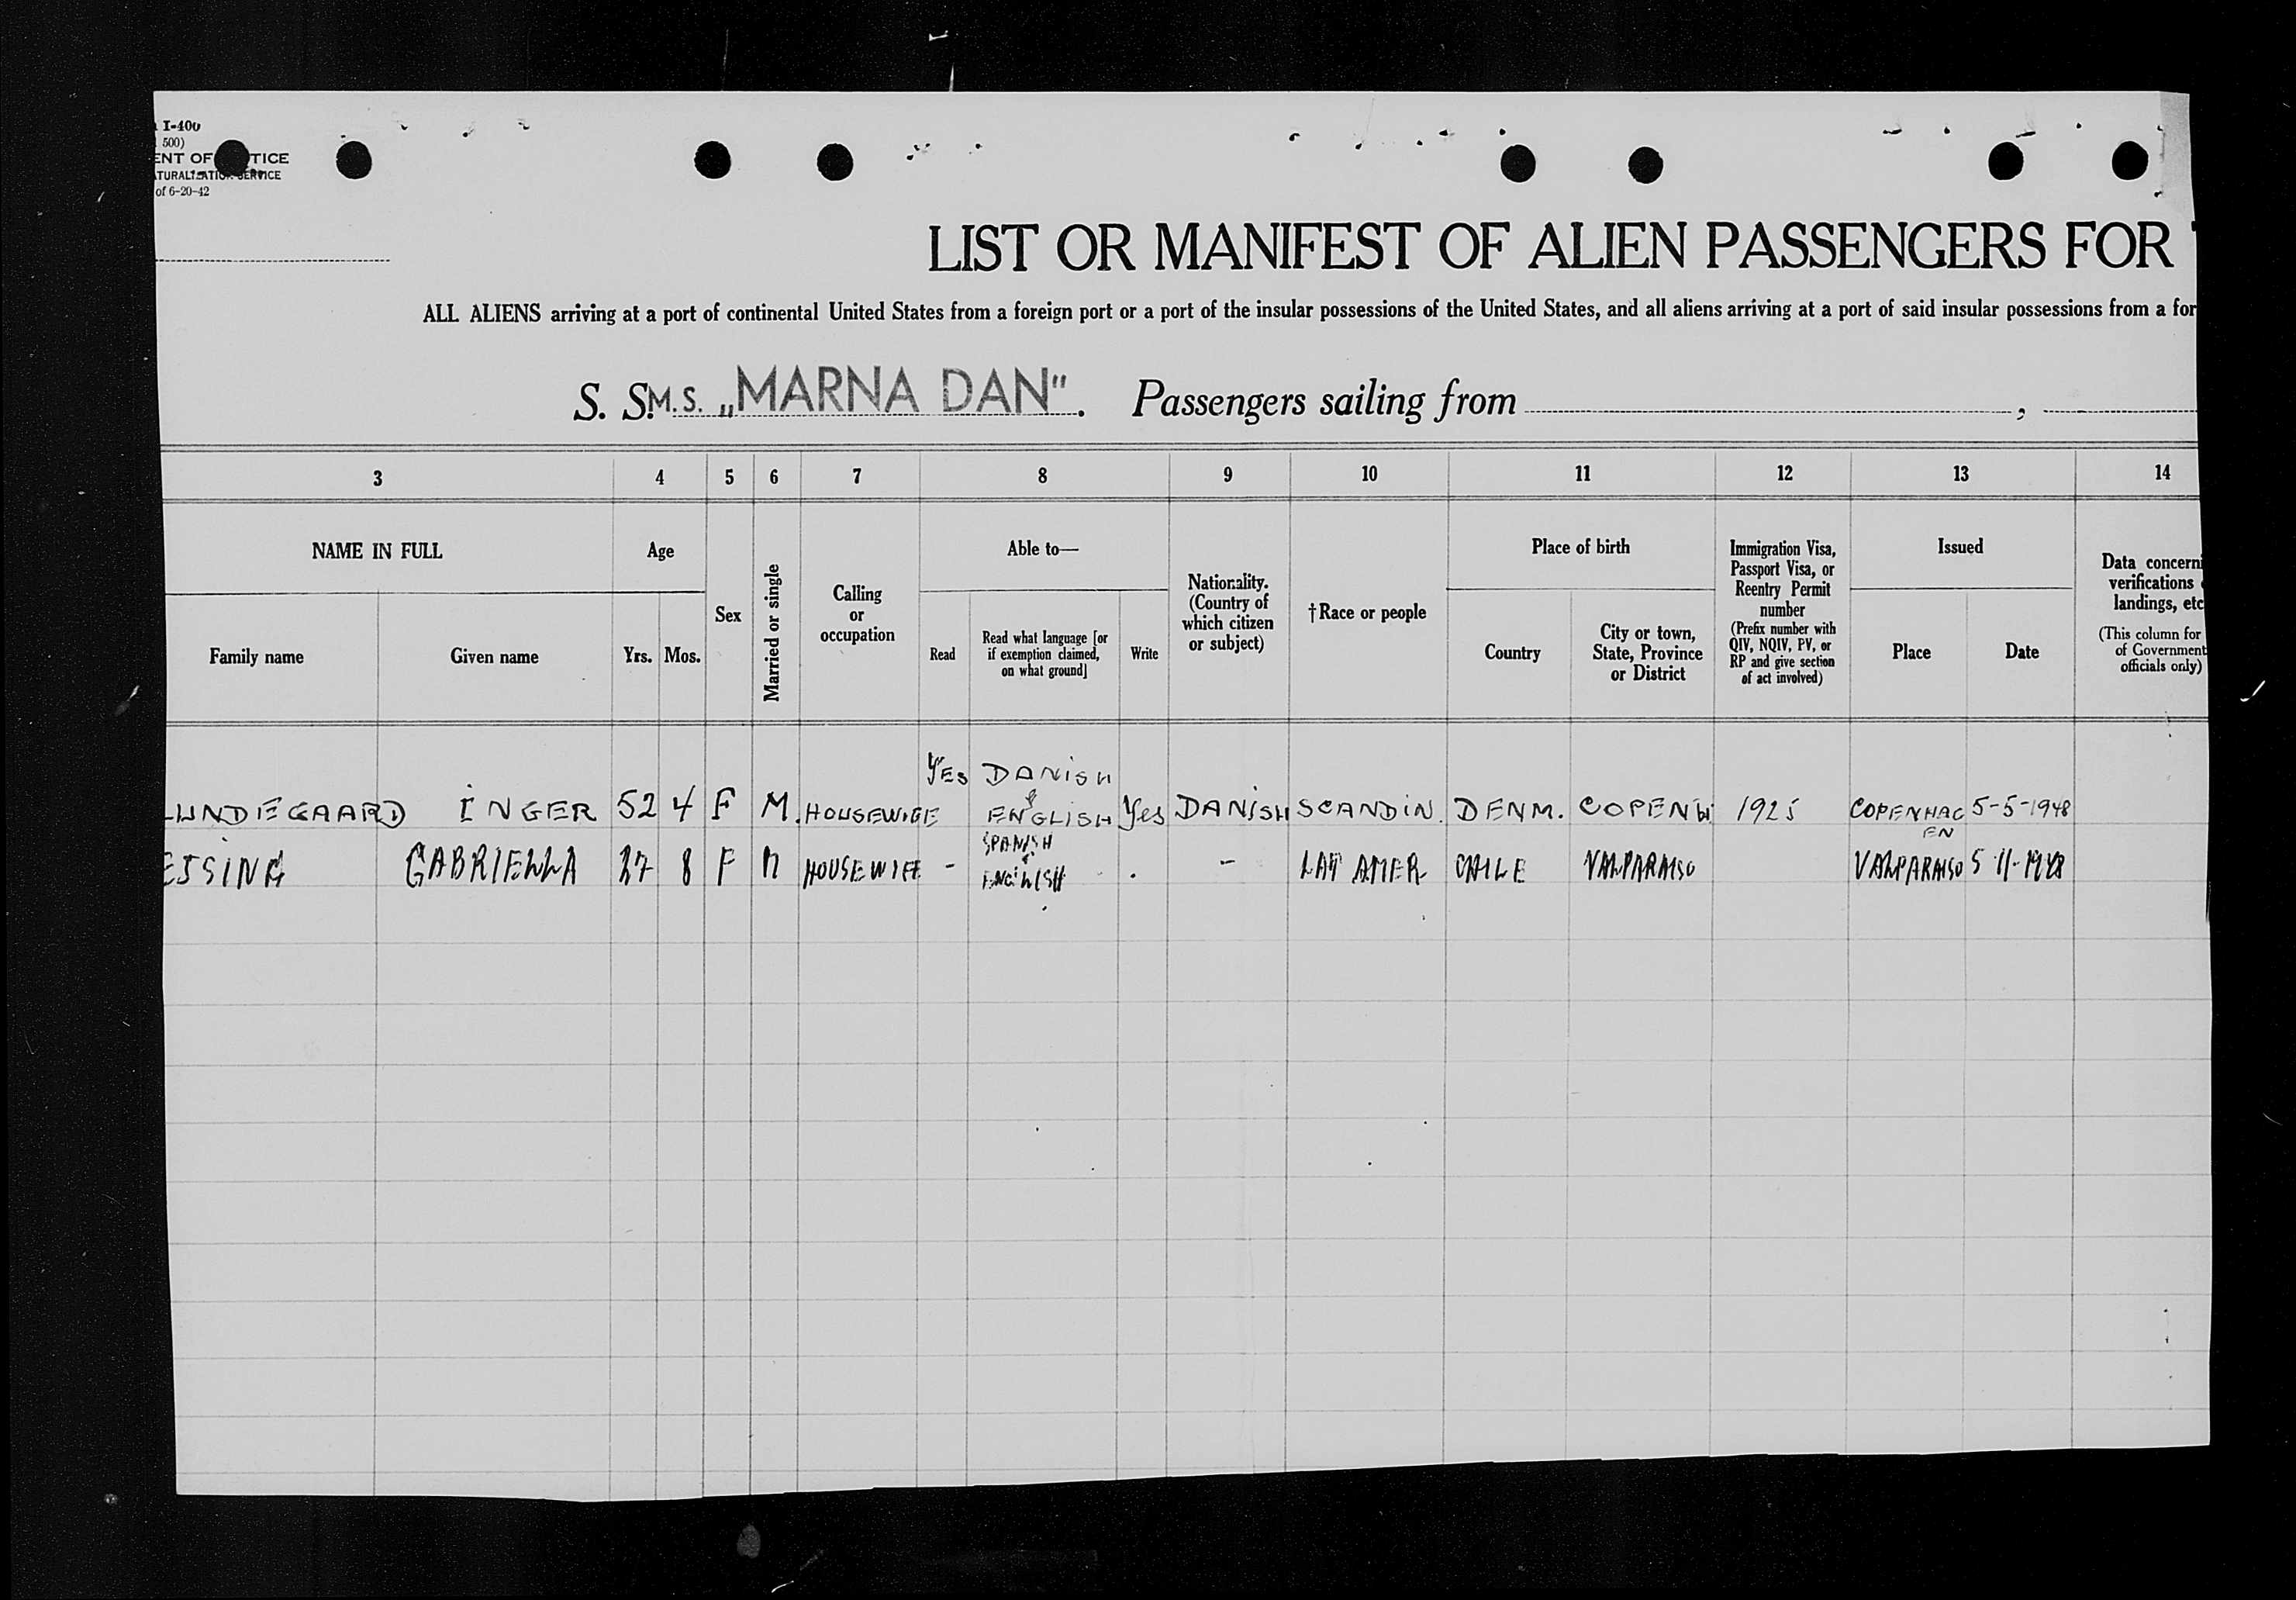 I-400
500)
ENT OF TICE
ATURALIZATION SERVICE
of 6-20-42
LIST OR MANIFEST OF ALIEN PASSENGERS FOR
ALL ALIENS arriving at a port of continental United States from a foreign port or a port of the insular possessions of the United States, and all aliens arriving at a port of said insular possessions from a for
S. S. M.S. „MARNA DAN". Passengers sailing from ,
3 4 5 6 7 8 9 10 11 12 13 14
NAME IN FULL
Family name
Given name
Age
Yrs. Mos.
Sex
Married or single
Calling
or
occupation
Able to—
Read
Read what language [or
if exemption claimed,
on what ground]
Write
Nationality.
(Country of
which citizen
or subject)
†Race or people
Place of birth
Country
City or town,
State, Province
or District
Immigration Visa,
Passport Visa, or
Reentry Permit
number
(Prefix number with
QIV, NQIV, PV, or
RP and give section
of act involved)
Issued
Place
Date
Data concerni
verifications
landings, etc
(This column for
of Government
officials only)
LUNDEGAARD INGER 52 4 F M. HOUSEWIFE Yes DANISH & ENGLISH Yes DANISH SCANDIN. DENM. COPENH. 1925 COPENHAGEN 5-5-1948
ESSING GABRIELLA 27 8 F M HOUSEWIFE - SPANISH & ENGLISH - LAT AMER CHILE VALPARAISO VALPARAISO 5-11-1948